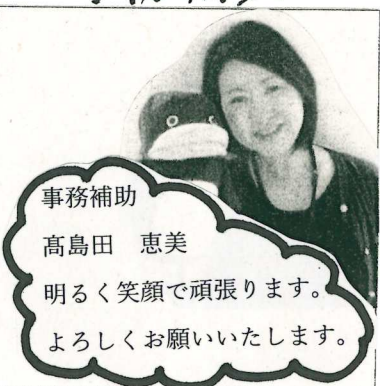 事務補助
髙島田　恵美
明るく笑顔で頑張ります。
よろしくお願いいたします。